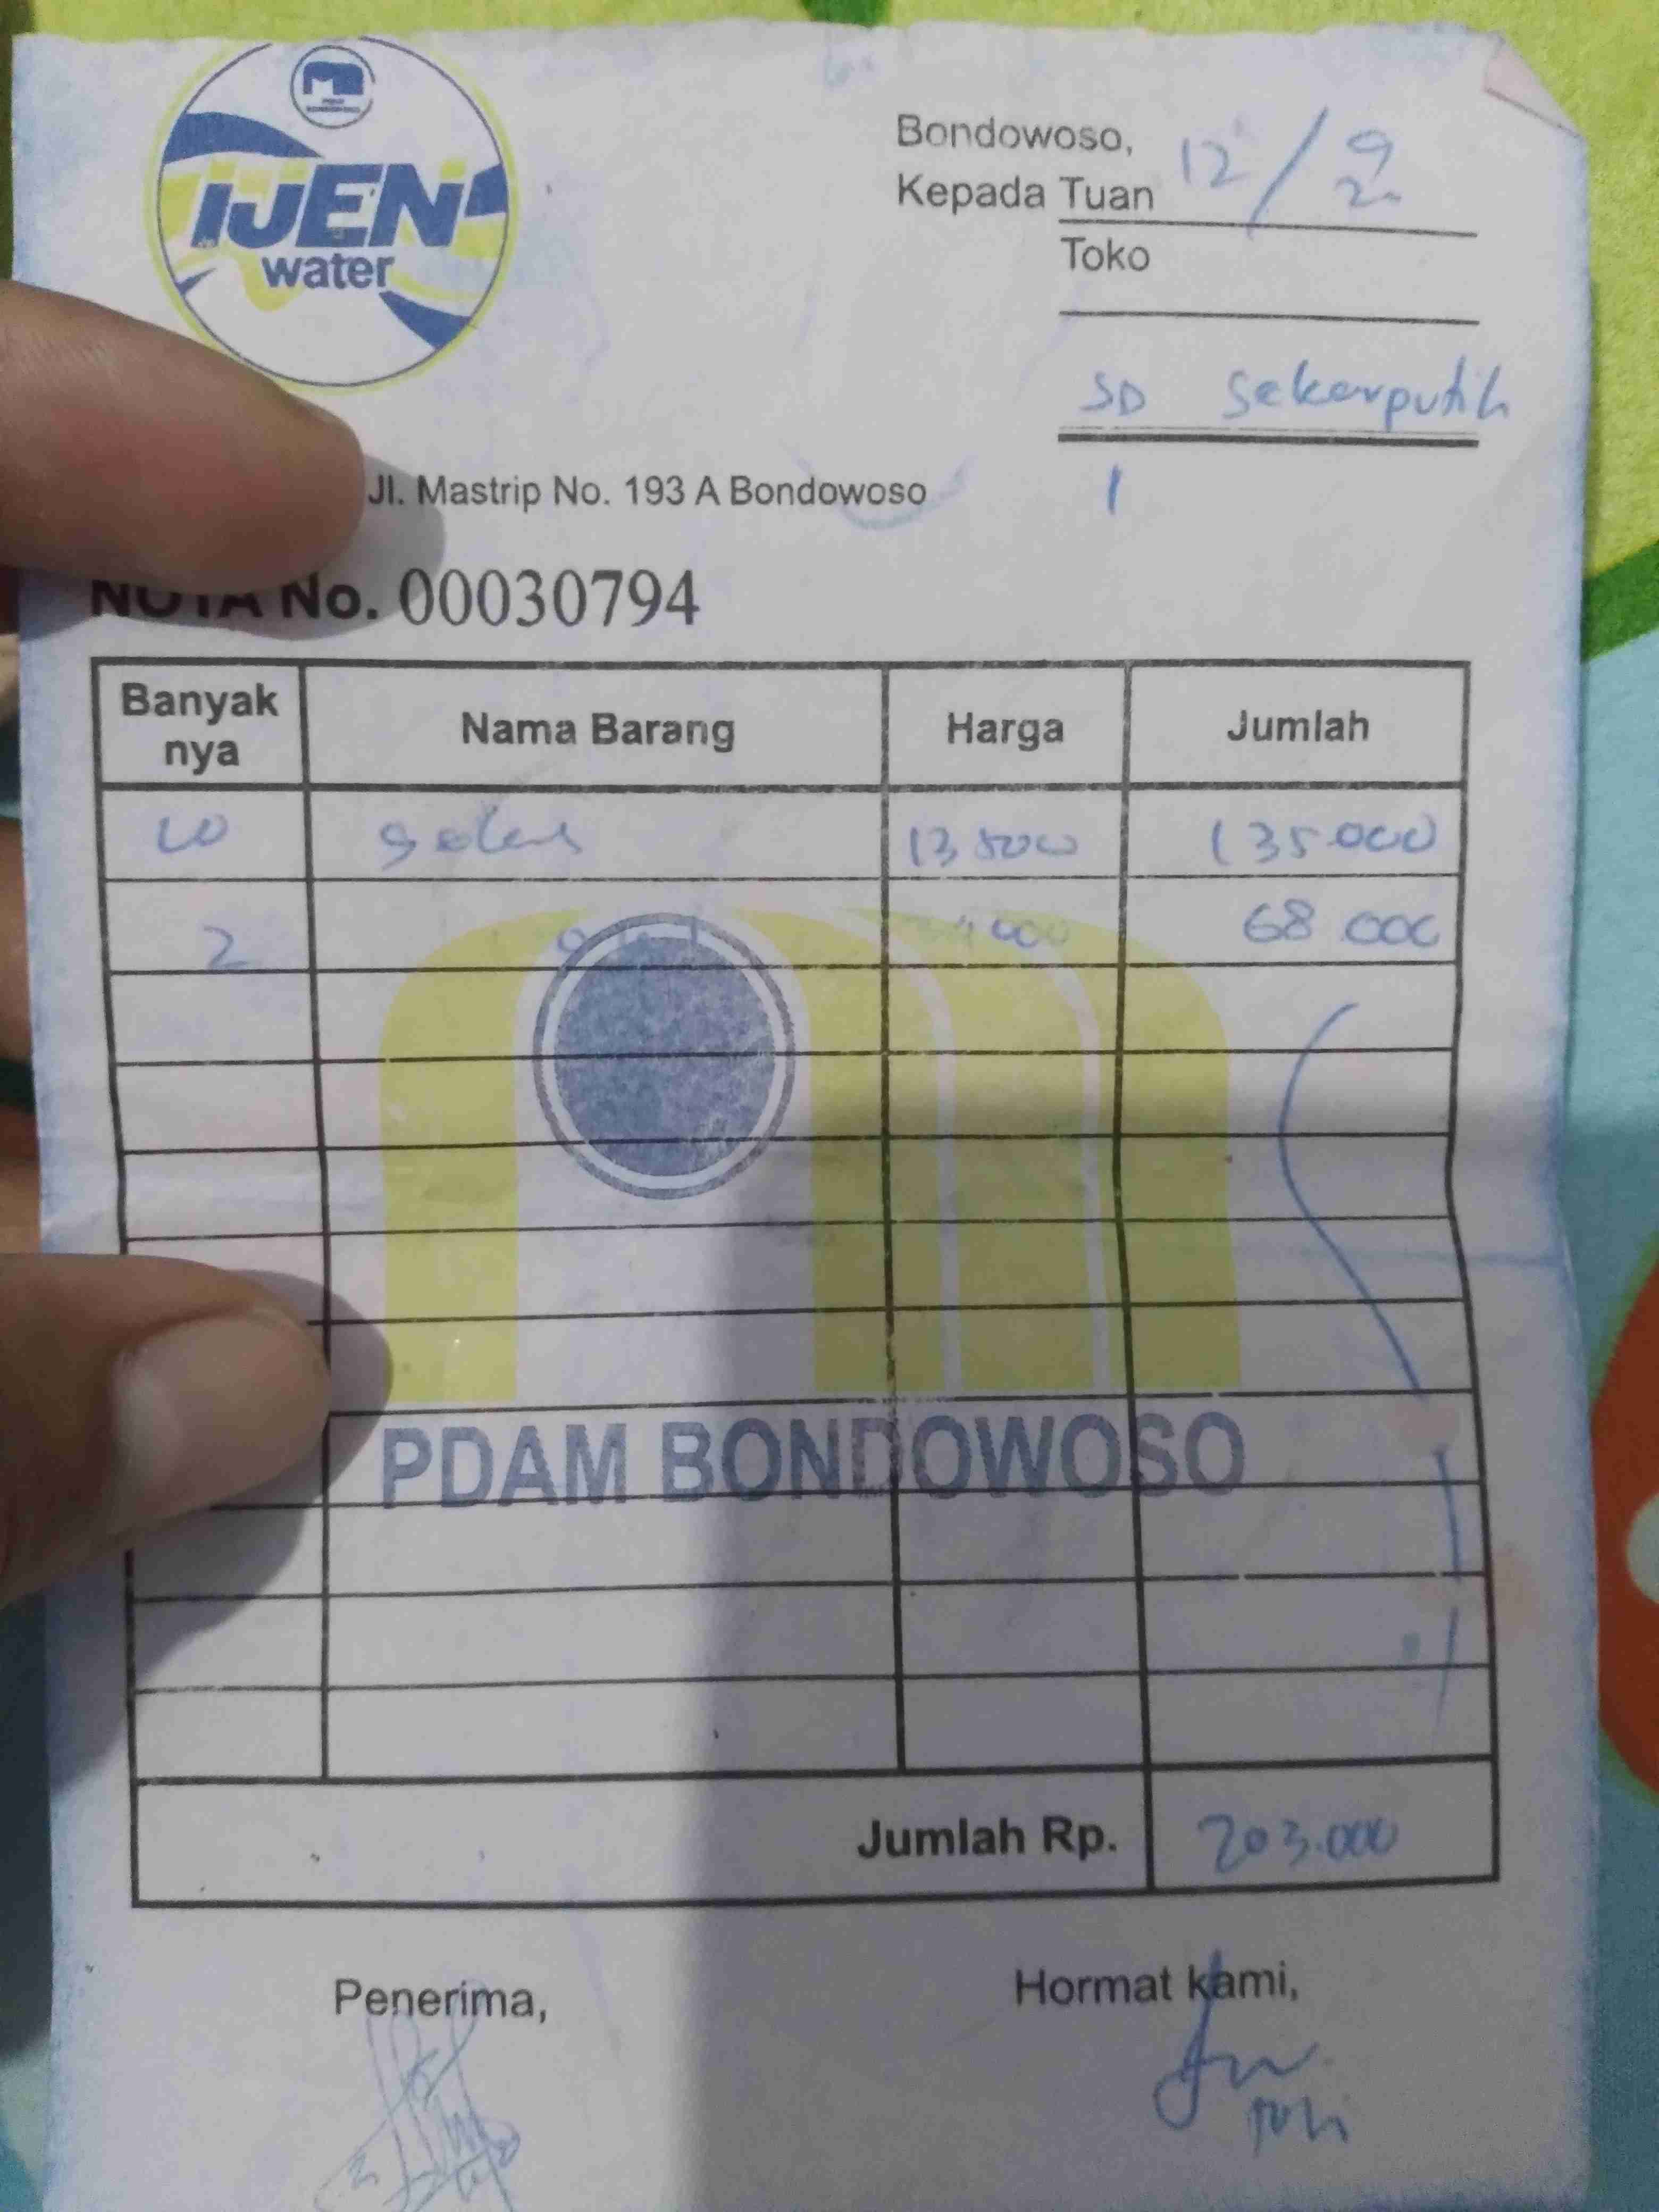 IJEN
water
Bondowoso, 12/9
Kepada Tuan
Toko
SD Sekarputih
1
Jl. Mastrip No. 193 A Bondowoso
NOTA No. 00030794
Banyak nya Nama Barang Harga Jumlah
10 gelas 13 500 135.000
2 68 000
PDAM BONDOWOSO
Jumlah Rp. 203.000
Penerima, Hormat kami,